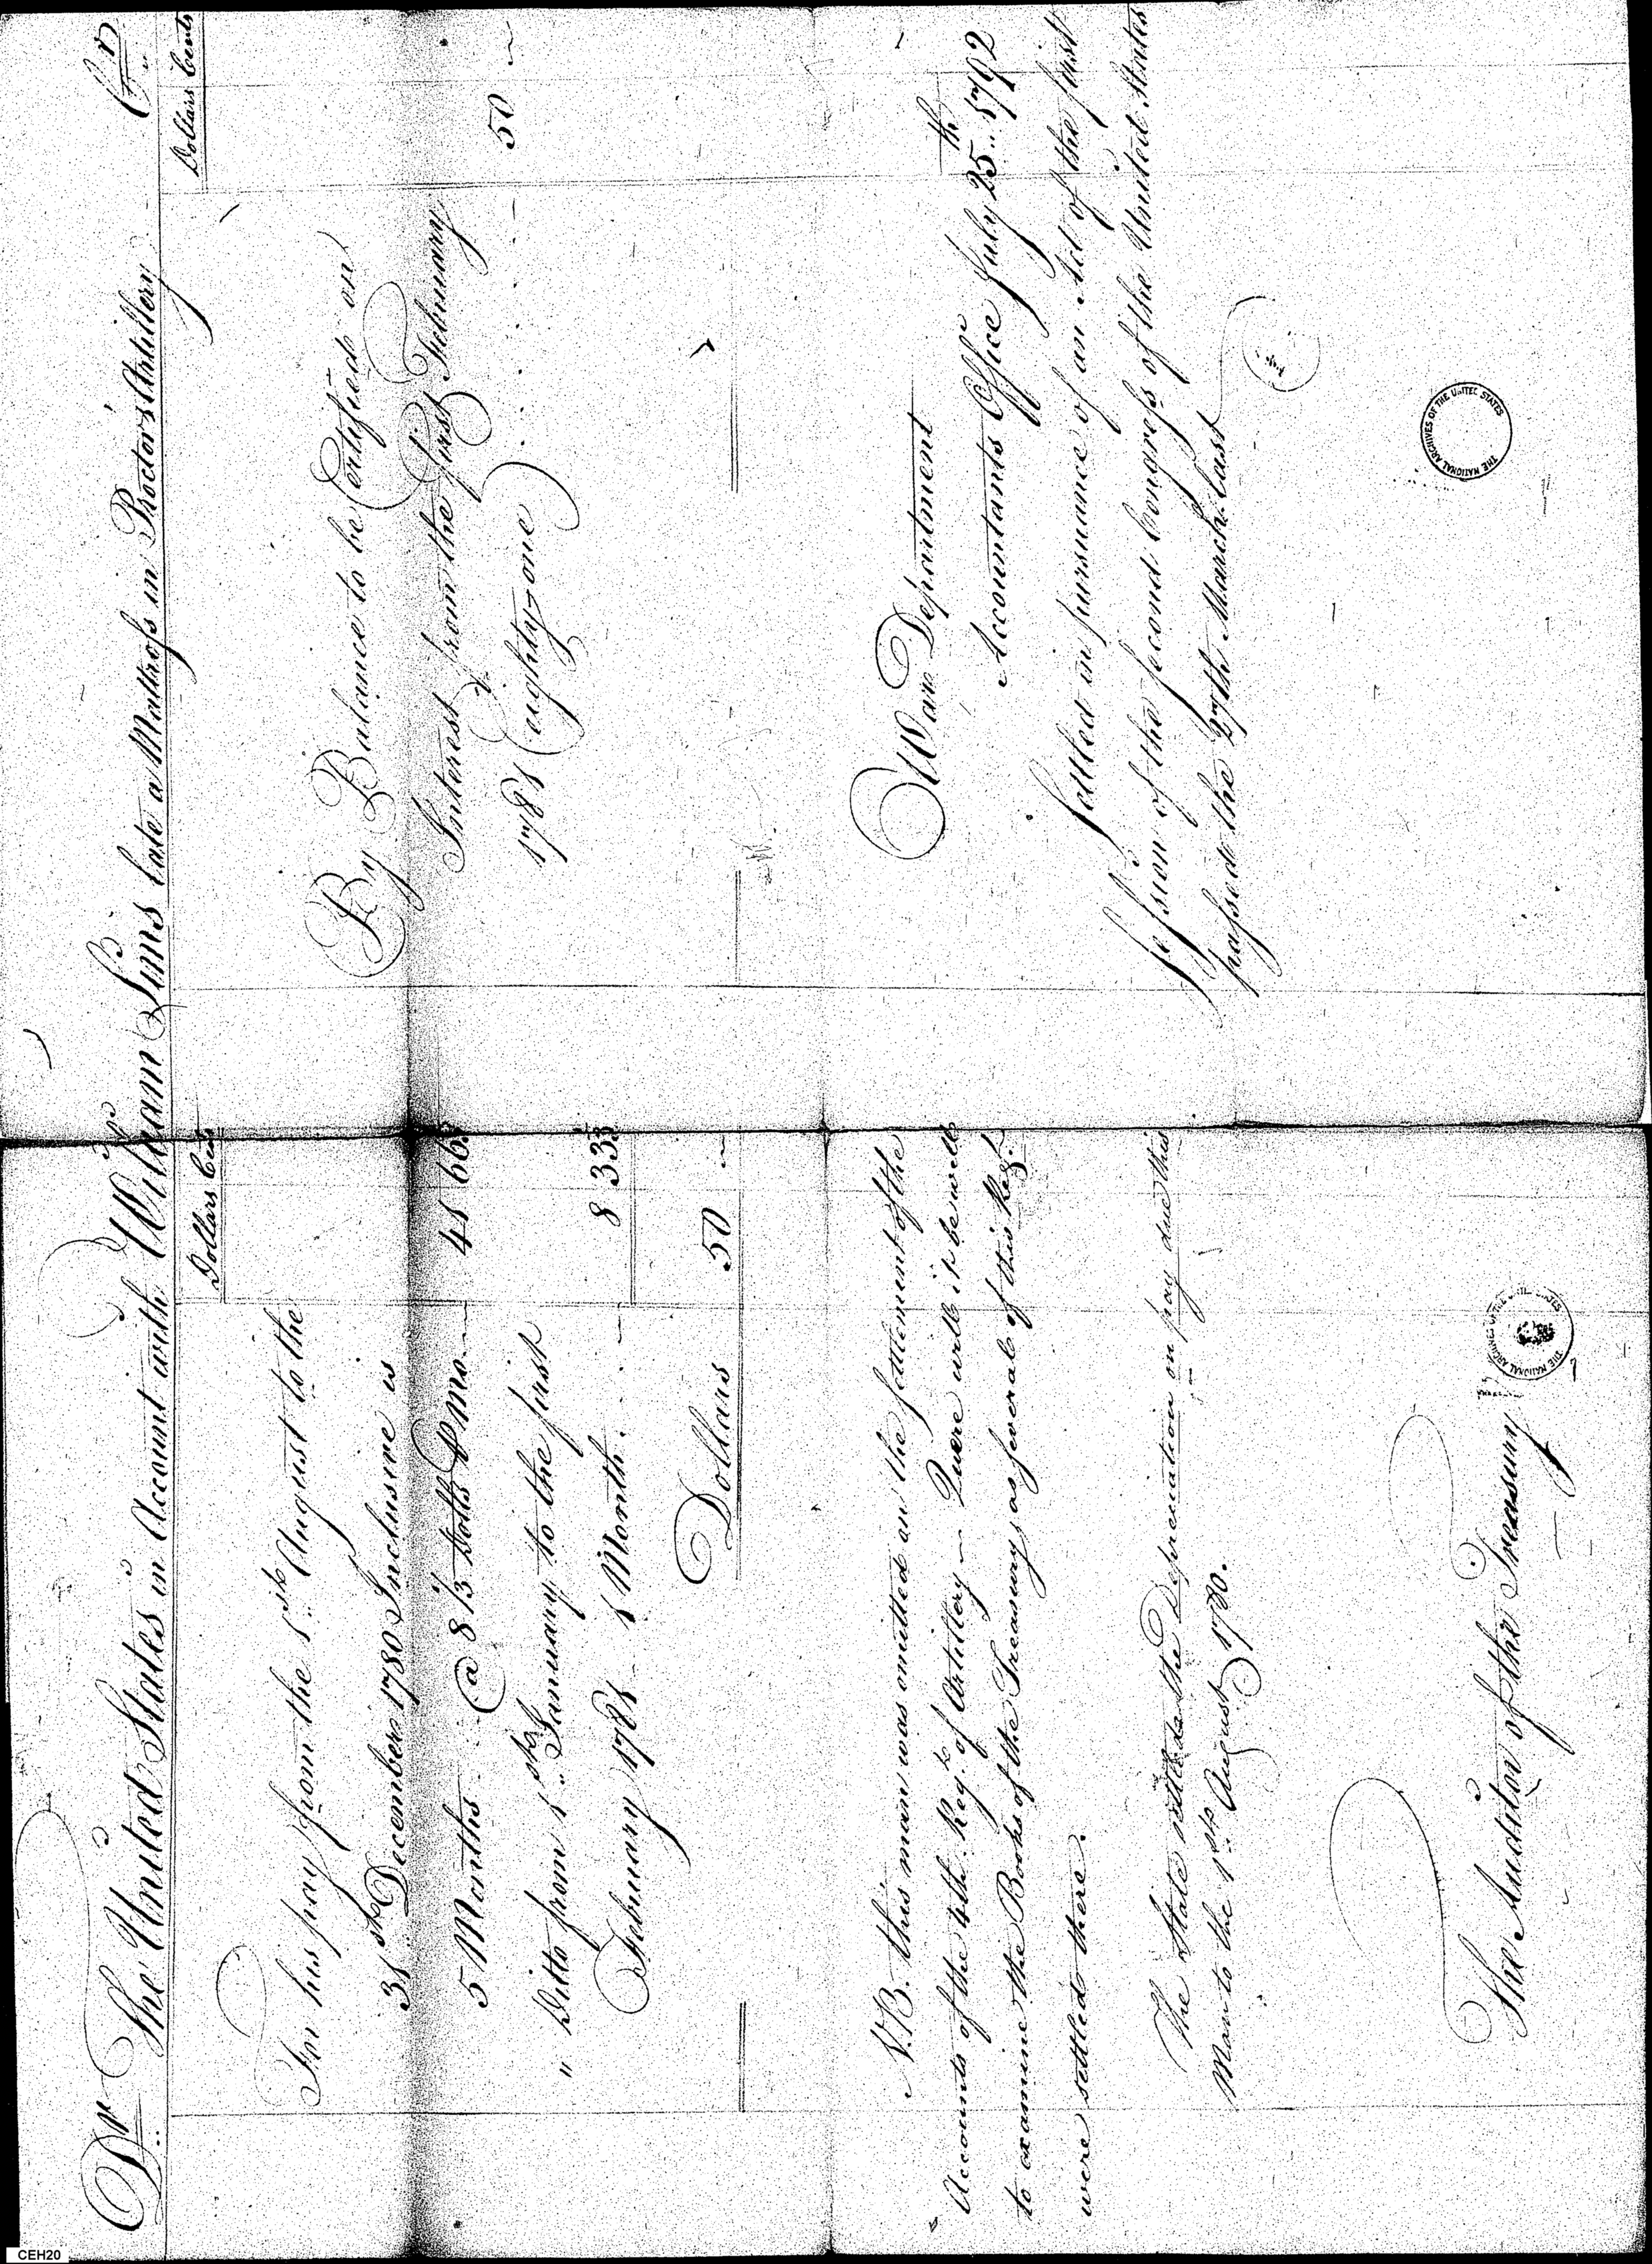 Dr. The United States in Account with William Sims late a Matross in Proctor's Artillery Cr.
Dollars Cents
For his pay from the 1st August to the
31st December 1780 Inclusive is
5 Months @ 8 1/3 Dolls P Mo. 41 66 2/3
" Ditto from 1st January to the first
February 1781 1 Month 8 33 1/3
Dollars 50 ~
N.B. this man was omitted in the settlement of the
Accounts of the 4th Regt. of Artillery — Quere will it be well
to examine the Books of the Treasury as several of this Regt.
were settled there.
The State settled the Depreciation on pay due this
Man to the 1st August 1780.
The Auditor of the Treasury
Dollars Cents
By Balance to be Certified on
Interest from the first February
1781 (eighty-one) 50 ~
War Department
Accountants Office July 25th 1792
Settled in pursuance of an Act of the first
Session of the second Congress of the United States
passed the 27th March last
THE NATIONAL ARCHIVES OF THE UNITED STATES
THE NATIONAL ARCHIVES OF THE UNITED STATES
CEH20